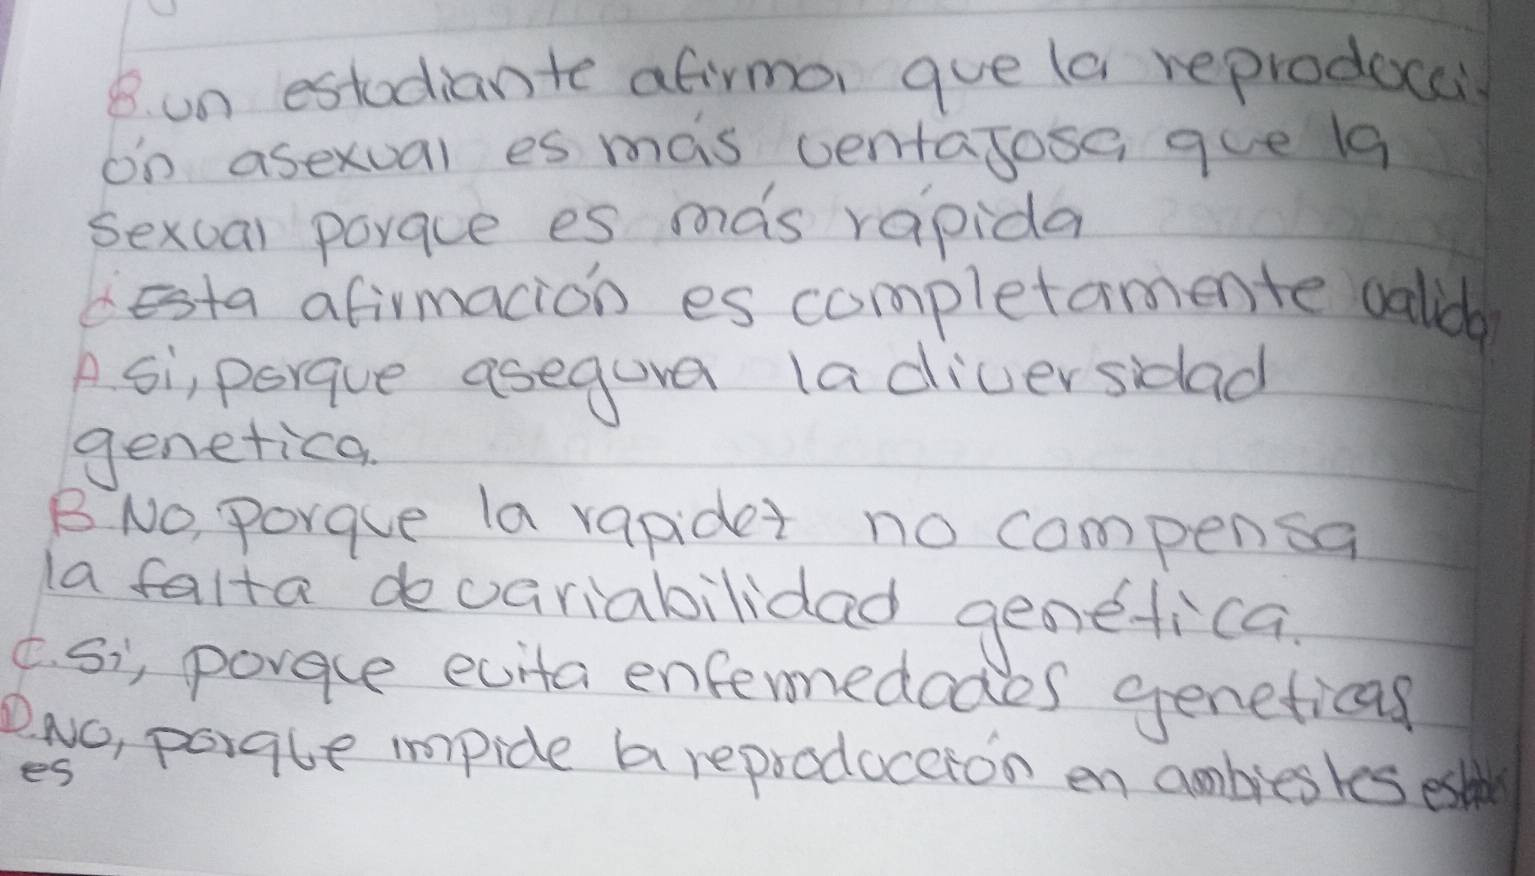 8. un estudiante afirma que la reproducci-
ón asexual es más ventajosa que la
sexual porque es más rápida
¿Esta afirmación es completamente valida?
A. Si, porque asegura la diversidad
genetica.
B No, porque la rapidez no compensa
la falta de variabilidad genética.
C. Si, porque evita enfermedades geneticas
D. No, porque impide la reproducción en ambientes establ
es